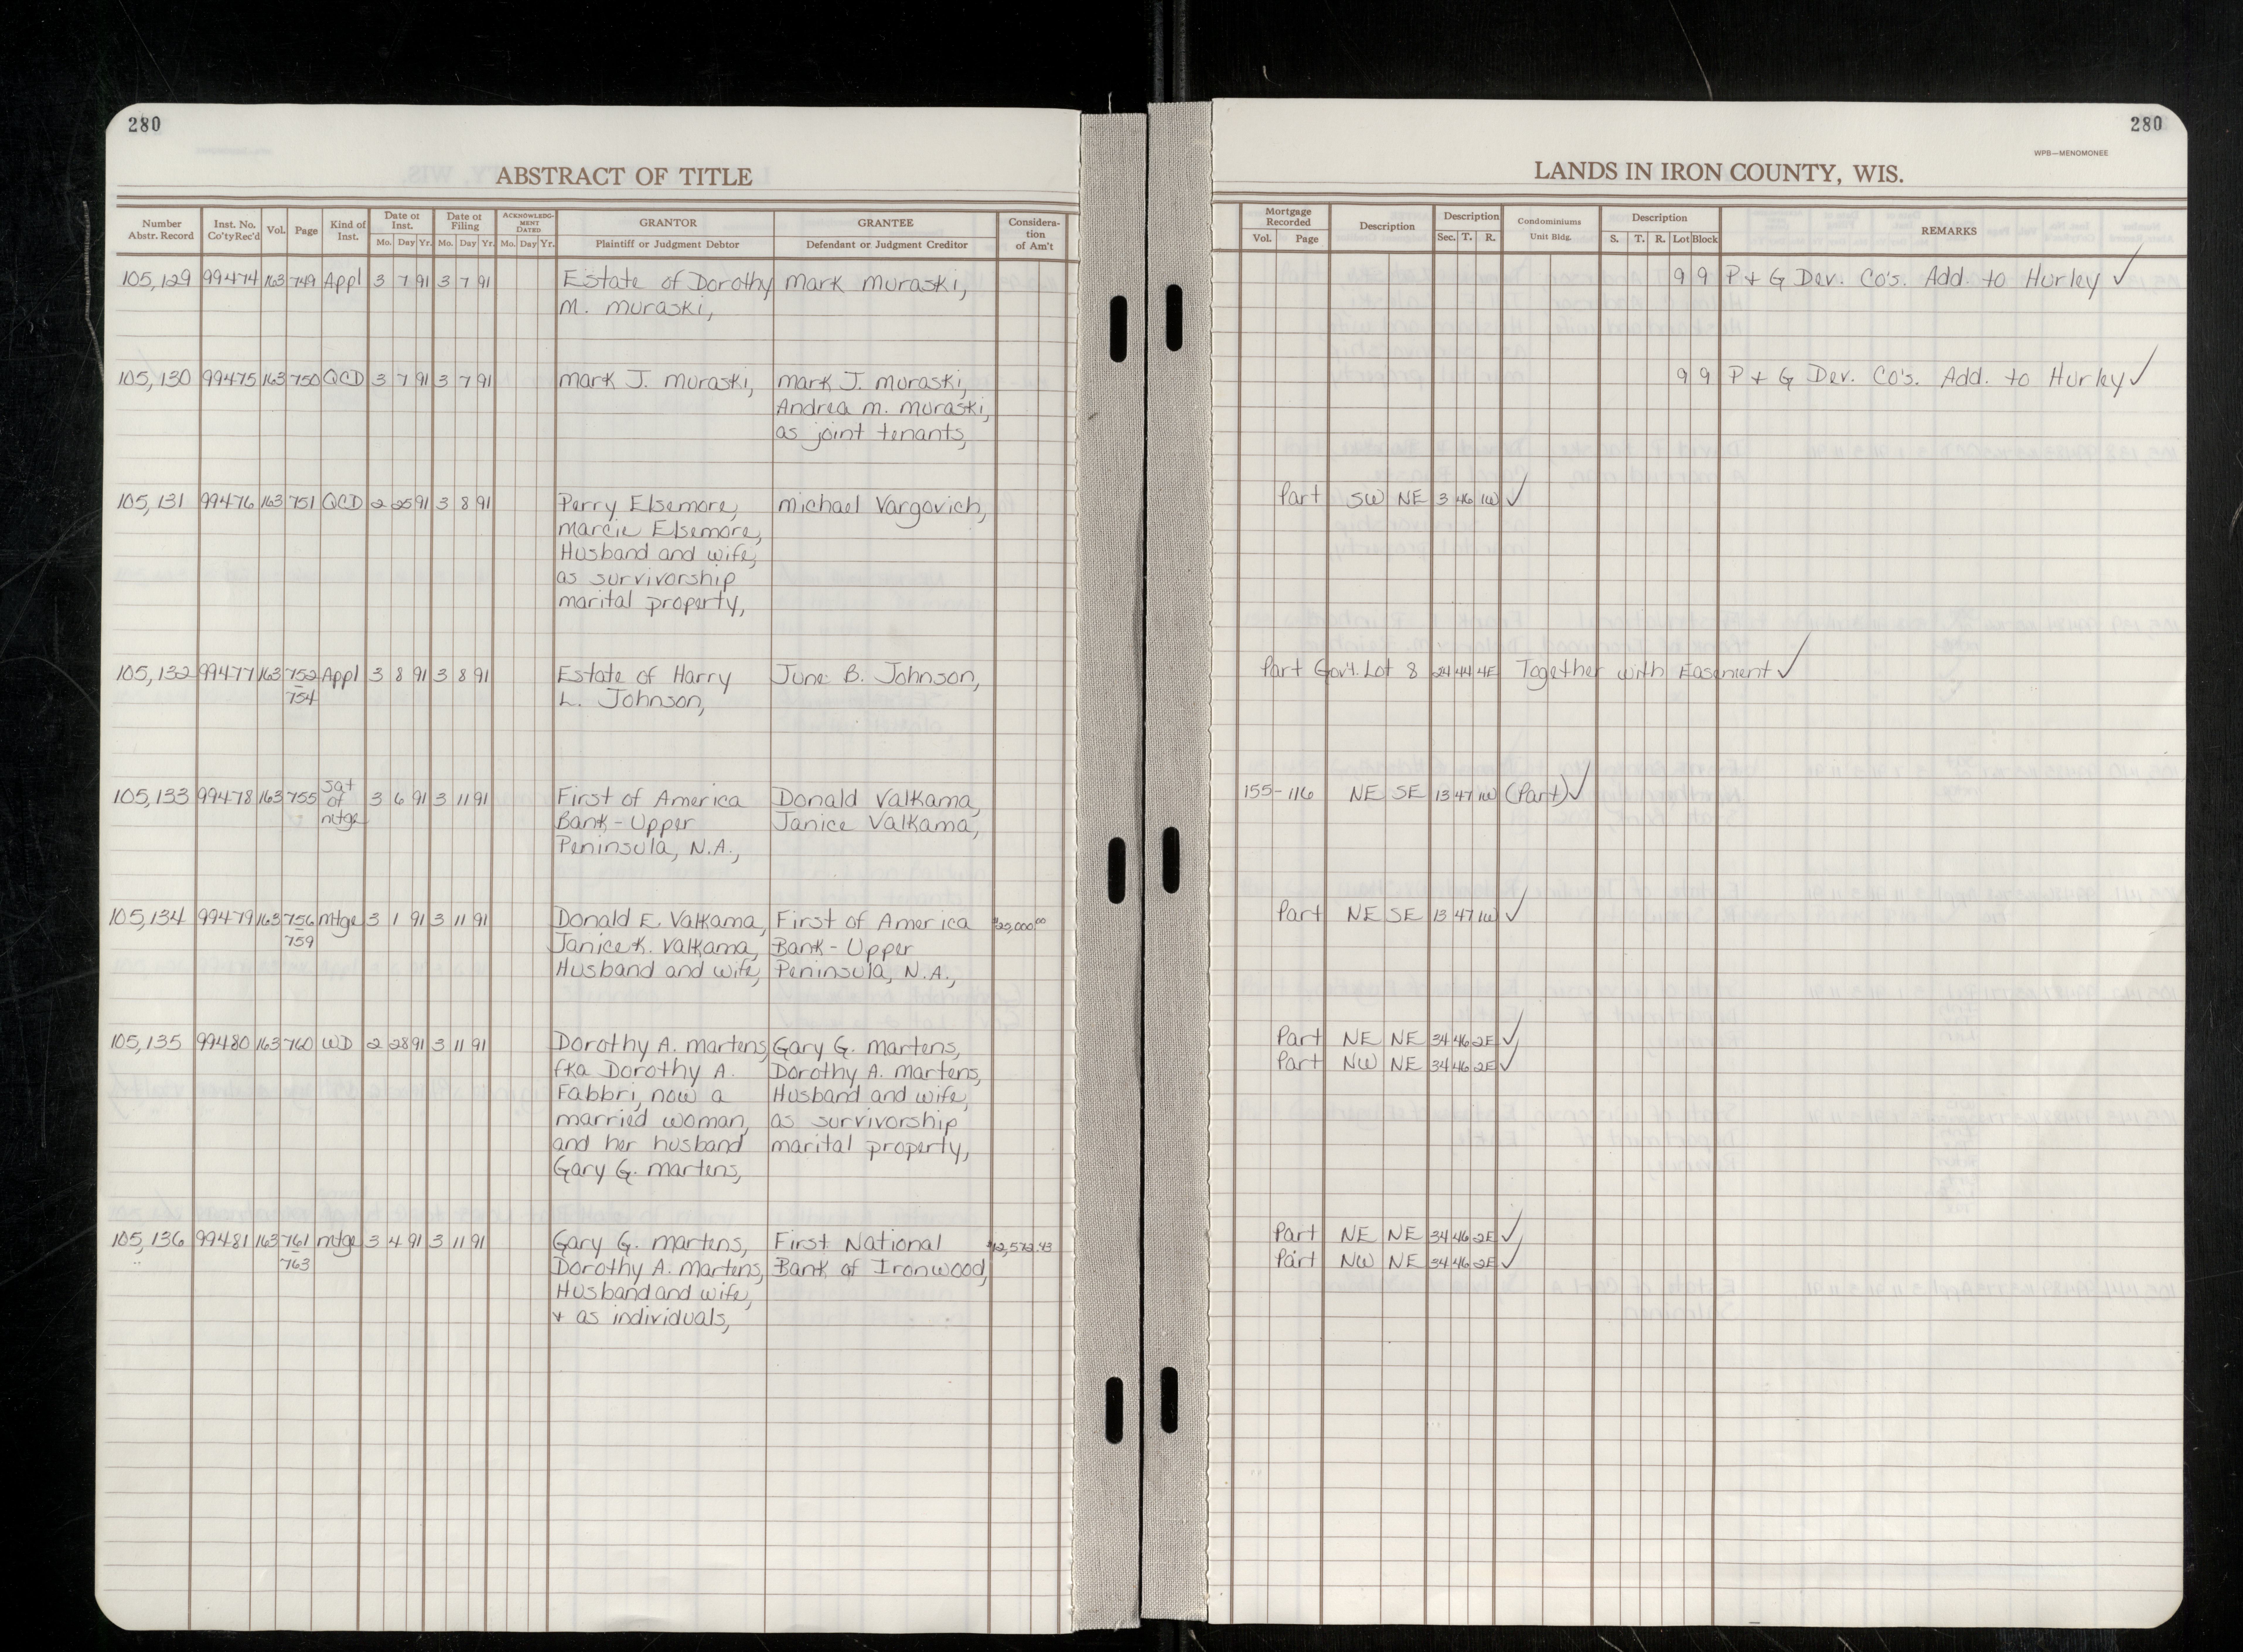 280
ABSTRACT OF TITLE
Number Abstr. Record | Inst. No. Co'ty Rec'd | Vol. | Page | Kind of Inst. | Date of Inst. Mo. Day Yr. | Date of Filing Mo. Day Yr. | ACKNOWLEDGMENT DATED Mo. Day Yr. | GRANTOR Plaintiff or Judgment Debtor | GRANTEE Defendant or Judgment Creditor | Consideration of Am't
105,129 99474 163 749 Appl 3 7 91 3 7 91 Estate of Dorothy Mark Muraski,
M. Muraski,
105,130 99475 163 750 QCD 3 7 91 3 7 91 Mark J. Muraski, Mark J. Muraski,
Andrea M. Muraski,
as joint tenants,
105,131 99476 163 751 QCD 2 25 91 3 8 91 Perry Elsemore, Michael Vargovich,
Marcie Elsemore,
Husband and wife,
as survivorship
marital property,
105,132 99477 163 752 Appl 3 8 91 3 8 91 Estate of Harry June B. Johnson,
754 L. Johnson,
105,133 99478 163 755 Sat of Mtge 3 6 91 3 11 91 First of America Donald Valkama,
Bank-Upper Janice Valkama,
Peninsula, N.A.,
105,134 99479 163 756 Mtge 3 1 91 3 11 91 Donald E. Valkama, First of America
759 Janice K. Valkama, Bank-Upper
Husband and wife, Peninsula, N.A.,
105,135 99480 163 760 WD 2 28 91 3 11 91 Dorothy A. Martens, Gary G. Martens,
fka Dorothy A. Dorothy A. Martens,
Fabbri, now a Husband and wife,
married woman, as survivorship
and her husband marital property,
Gary G. Martens,
105,136 99481 163 761 Mtge 3 4 91 3 11 91 Gary G. Martens, First National $12,572.43
763 Dorothy A. Martens, Bank of Ironwood,
Husband and wife,
+ as individuals,
280
WPB—MENOMONEE
LANDS IN IRON COUNTY, WIS.
Mortgage Recorded Vol. Page | Description | Description Sec. T. R. | Condominiums Unit Bldg. | Description S. T. R. Lot Block | REMARKS
9 9 P + G Dev. Co's. Add. to Hurley ✓
9 9 P + G Dev. Co's. Add. to Hurley ✓
Part SW NE 3 46 1W ✓
Part Gov't. Lot 8 24 44 4E Together with Easement ✓
155-116 NE SE 13 47 1W (Part) ✓
Part NE SE 13 47 1W ✓
Part NE NE 34 46 2E ✓
Part NW NE 34 46 2E ✓
Part NE NE 34 46 2E ✓
Part NW NE 34 46 2E ✓